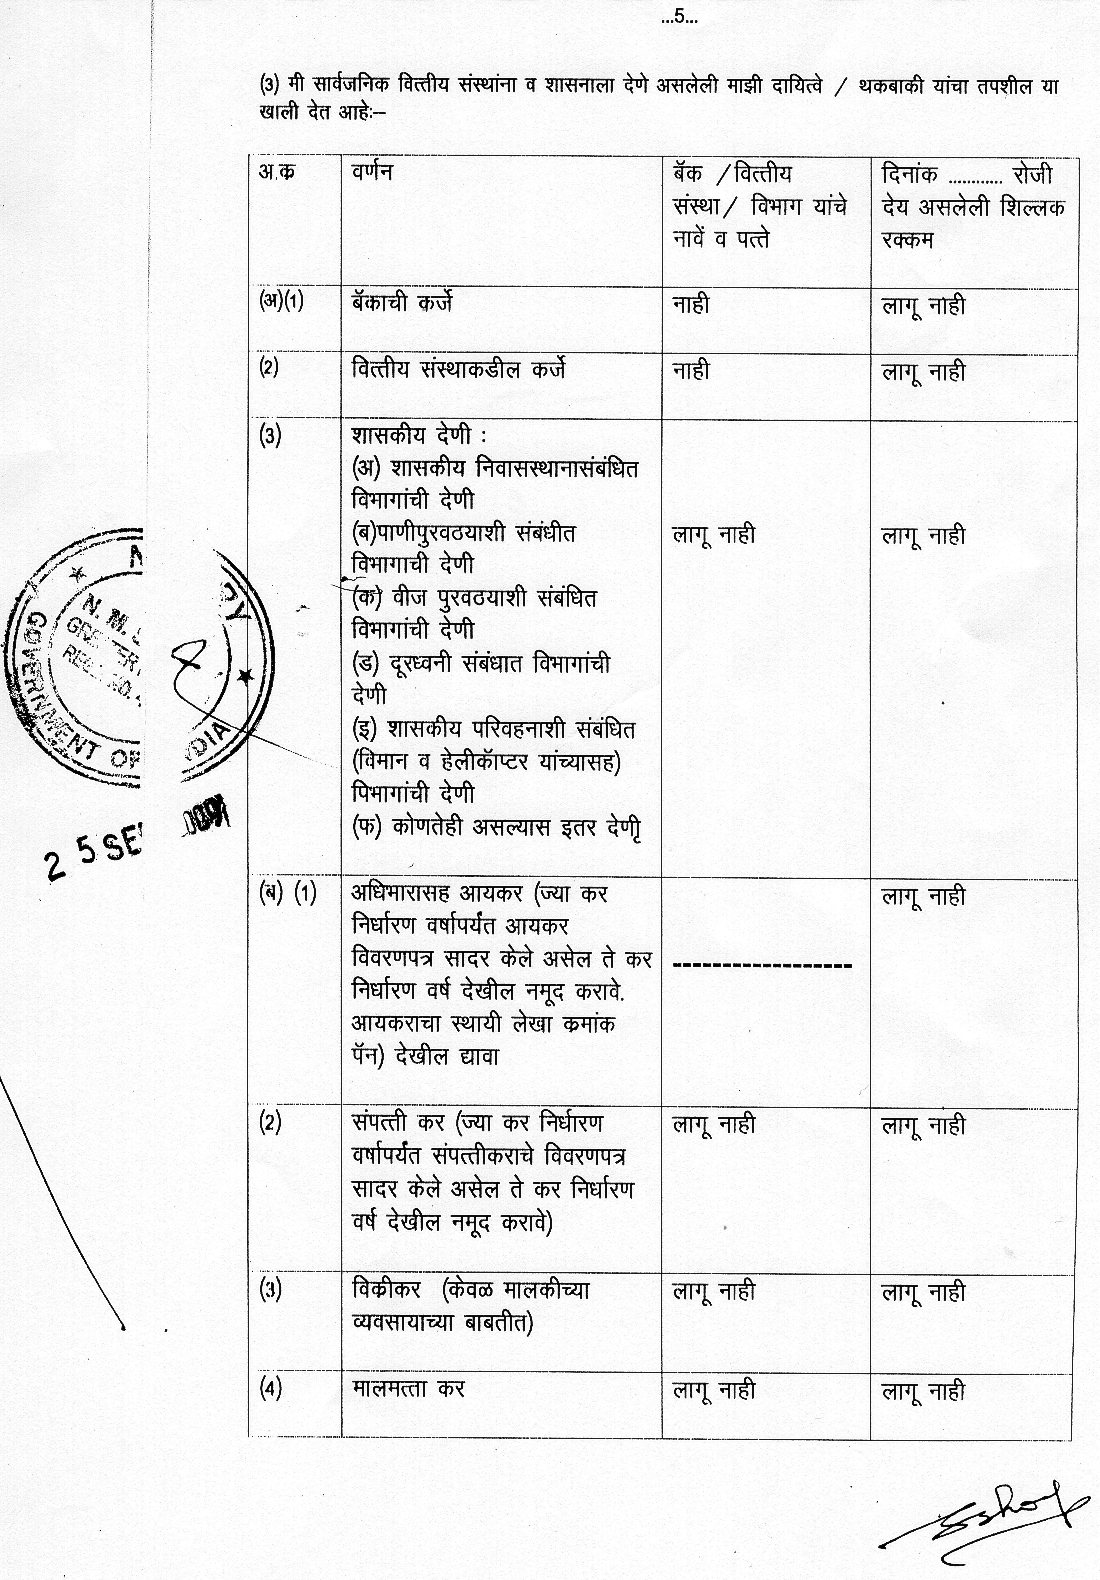 ...5...
(3) मी सार्वजनिक वित्तीय संस्थांना व शासनाला देणे असलेली माझी दायित्वे / थकबाकी यांचा तपशील या
खाली देत आहेः—
अ.क वर्णन बॅक /वित्तीय दिनांक ............ रोजी
संस्था/ विभाग यांचे देय असलेली शिल्लक
नावें व पत्ते रक्कम
(अ)(1) बॅकाची कर्जे नाही लागू नाही
(2) वित्तीय संस्थाकडील कर्जे नाही लागू नाही
(3) शासकीय देणी :
(अ) शासकीय निवासस्थानासंबंधित
विभागांची देणी
(ब)पाणीपुरवठयाशी संबंधीत लागू नाही लागू नाही
विभागाची देणी
(क) वीज पुरवठयाशी संबंधित
विभागांची देणी
(ड) दूरध्वनी संबंधात विभागांची
देणी
(इ) शासकीय परिवहनाशी संबंधित
(विमान व हेलीकॉप्टर यांच्यासह)
पिभागांची देणी
(फ) कोणतेही असल्यास इतर देणी
(ब) (1) अधिभारासह आयकर (ज्या कर लागू नाही
निर्धारण वर्षापर्यंत आयकर
विवरणपत्र सादर केले असेल ते कर ------------------
निर्धारण वर्ष देखील नमूद करावे.
आयकराचा स्थायी लेखा कमांक
पॅन) देखील द्यावा
(2) संपत्ती कर (ज्या कर निर्धारण लागू नाही लागू नाही
वर्षापर्यंत संपत्तीकराचे विवरणपत्र
सादर केले असेल ते कर निर्धारण
वर्ष देखील नमूद करावे)
(3) विकीकर (केवळ मालकीच्या लागू नाही लागू नाही
व्यवसायाच्या बाबतीत)
(4) मालमत्ता कर लागू नाही लागू नाही
N. M.
GOVERNMENT OF
25 SE